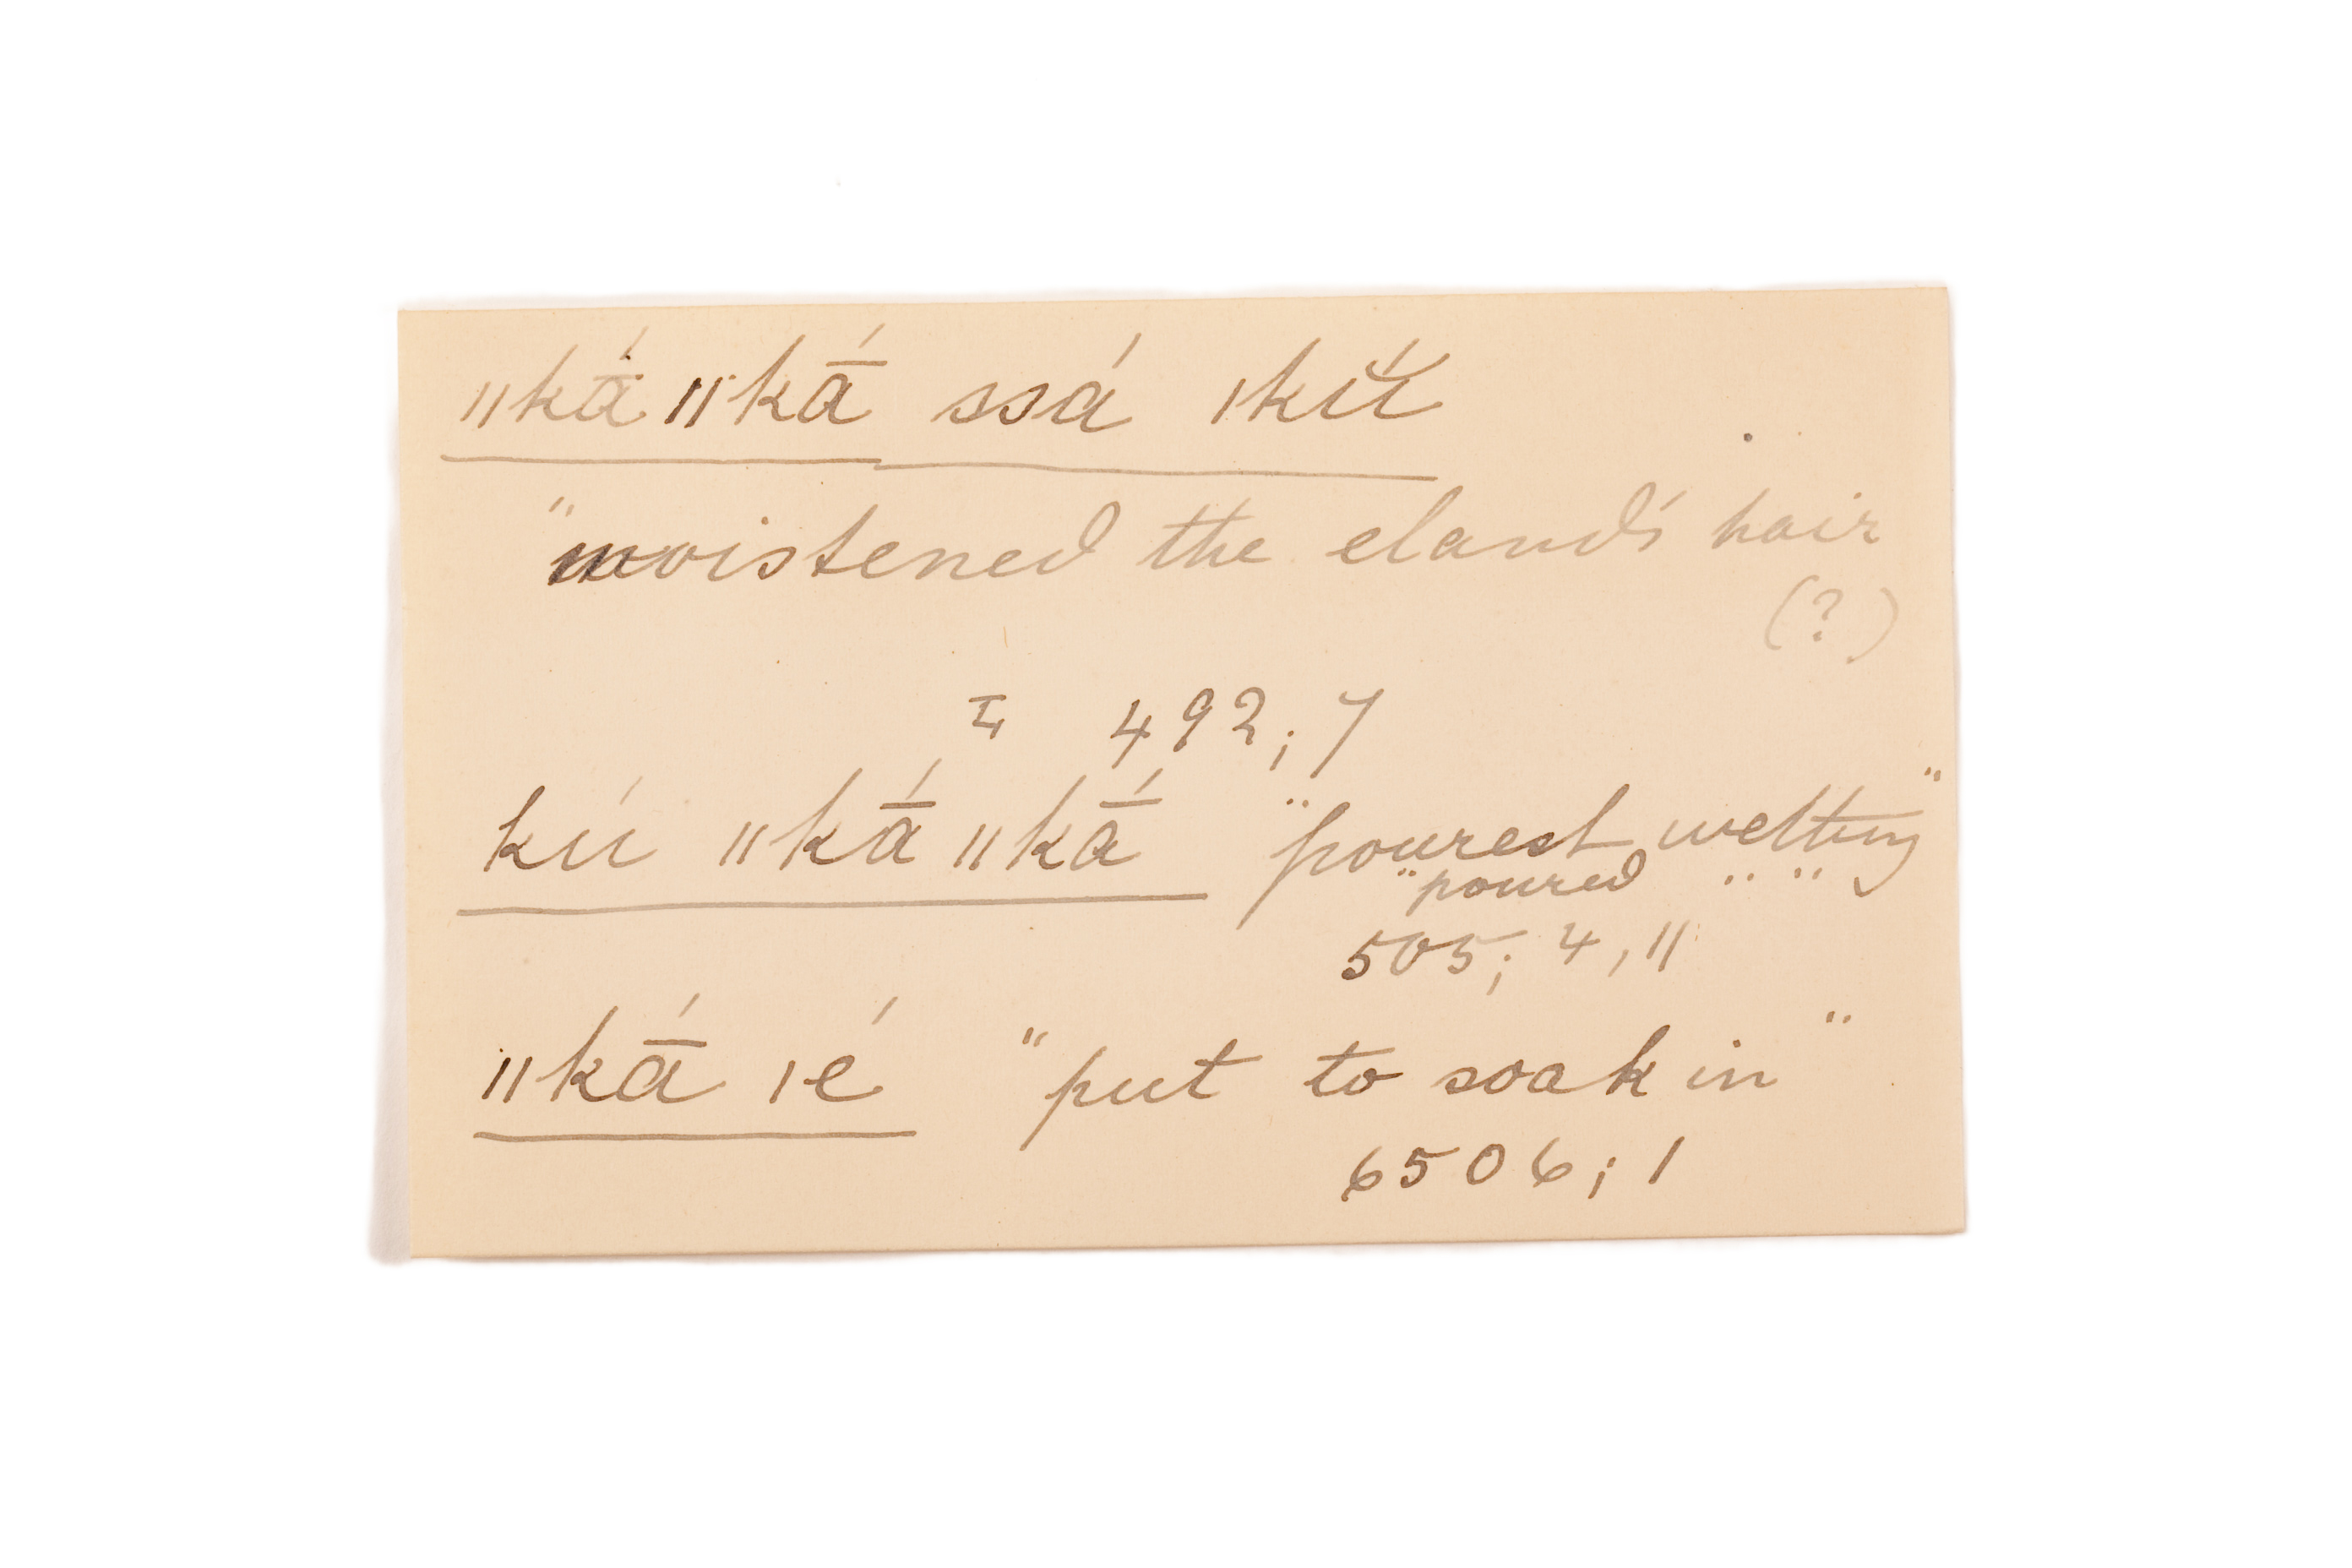 ǁkā́ ǁkā́ ssá ǀkŭ́
"moistened the eland's hair
(?)
492; 7
kú ǁkā́ ǁkā́ "pourest wetting"
"poured " "
505; 4, 11
ǁkā́ ǀé "put to soak in"
6506; 1